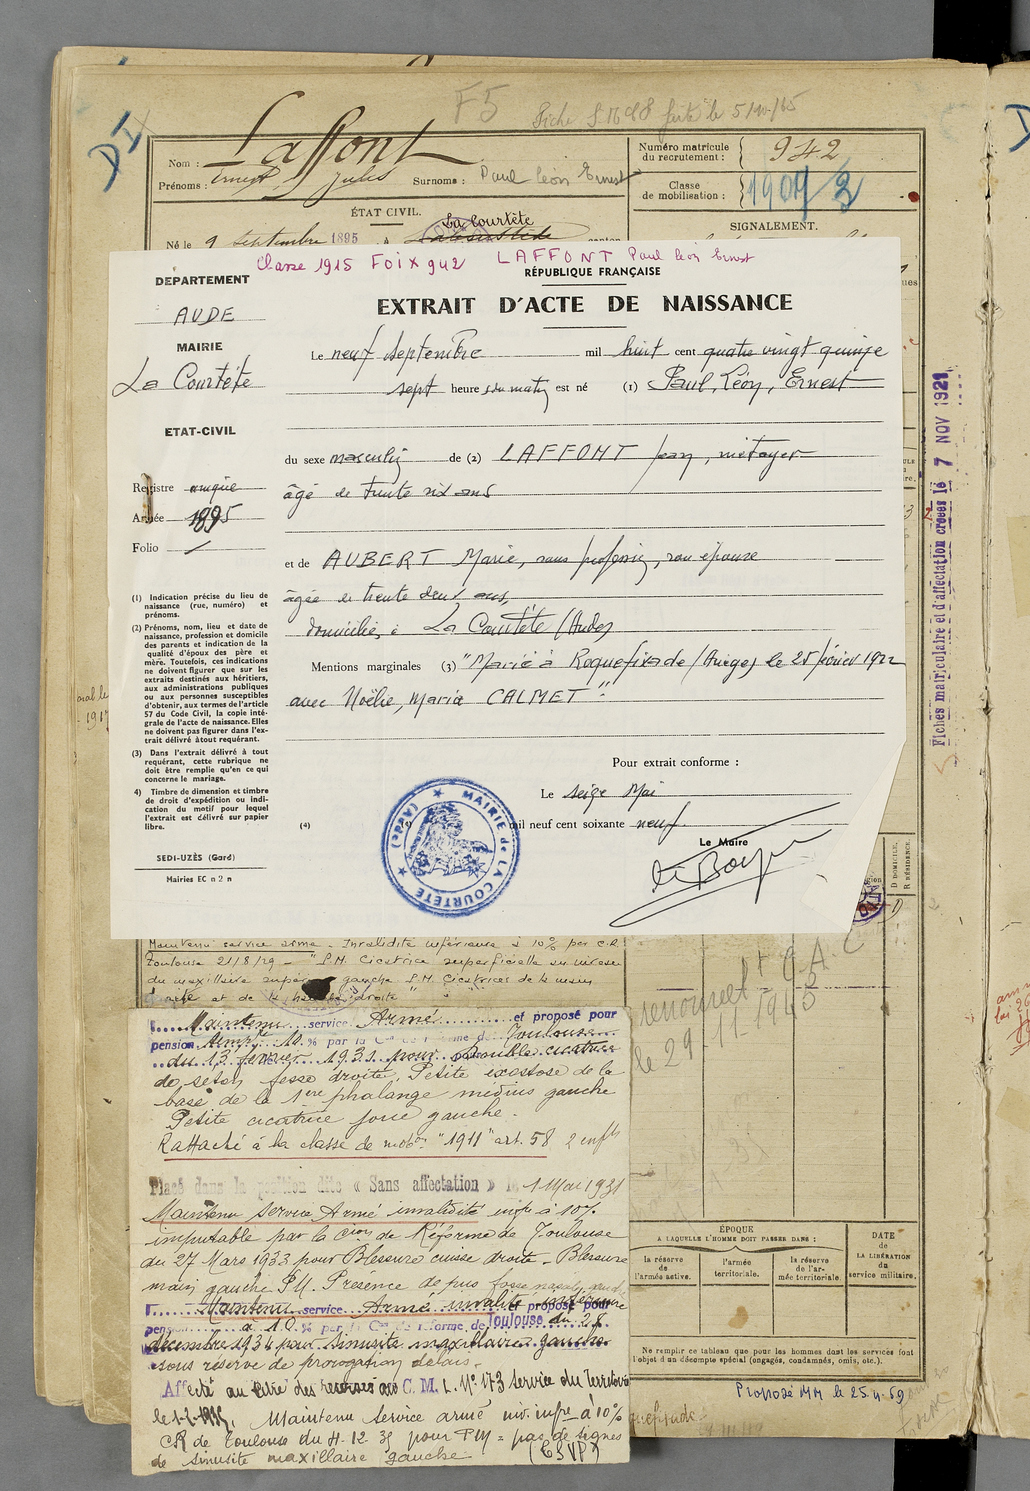 F5 Fiche faite le
D I
Nom : Laffont
Prénoms : Ernest Jules Surnoms : Paul Léon Ernest
Numéro matricule du recrutement : 942
Classe de mobilisation : 1907/3
ÉTAT CIVIL.
SIGNALEMENT.
La Courtète
Né le 9 septembre 1895 à Labastide canton
Classe 1915 FOIX 942 LAFFONT Paul Léon Ernest
RÉPUBLIQUE FRANÇAISE
EXTRAIT D'ACTE DE NAISSANCE
DÉPARTEMENT
AUDE
MAIRIE
La Courtète
ETAT-CIVIL
Registre unique
Année 1895
Folio /
Le neuf septembre mil huit cent quatre vingt quinze
sept heures du matin est né (1) Paul, Léon, Ernest
du sexe masculin de (2) LAFFONT Jean, métayer
âgé de trente six ans
et de AUBERT Marie, sans profession, son épouse
âgée de trente deux ans,
domiciliés à La Courtète (Aude)
Mentions marginales (3) "Marié à Roquefixade (Ariège) le 25 février 1922
avec Noëlie, Maria CALMET".
Pour extrait conforme :
Le seize Mai
(4) mil neuf cent soixante neuf
Le Maire
MAIRIE de LA COURTETE (AUDE)
(1) Indication précise du lieu de
naissance (rue, numéro) et
prénoms.
(2) Prénoms, nom, lieu et date de
naissance, profession et domicile
des parents et indication de la
qualité d'époux des père et
mère. Toutefois, ces indications
ne doivent figurer que sur les
extraits destinés aux héritiers,
aux administrations publiques
ou aux personnes susceptibles
d'obtenir, aux termes de l'article
57 du Code Civil, la copie inté-
grale de l'acte de naissance. Elles
ne doivent pas figurer dans l'ex-
trait délivré à tout requérant.
(3) Dans l'extrait délivré à tout
requérant, cette rubrique ne
doit être remplie qu'en ce qui
concerne le mariage.
4) Timbre de dimension et timbre
de droit d'expédition ou indi-
cation du motif pour lequel
l'extrait est délivré sur papier
libre.
SEDI-UZÈS (Gard)
Mairies EC n 2 n
Fiches matriculaire et d'affectation créées le 7 NOV 1921
D DOMICILE,
R RÉSIDENCE.
D
Maintenu service armé - Invalidité inférieure à 10% par C.R
Toulouse 21/8/29 - "P.M. Cicatrice superficielle au niveau
du maxillaire supérieur gauche P.M. Cicatrices de la main
et de la droite"
Maintenu service Armé et proposé pour
pension 10 % par la Con de réforme de Toulouse
du 13 février 1931 pour Double cicatrice
de séton fesse droite. Petite exostose de la
base de la 1ere phalange médius gauche
Petite cicatrice joue gauche.
Rattaché à la classe de mobon "1911" art. 58 2 enfts
Placé dans la position dite « Sans affectation » le 1 Mai 1931
Maintenu Service Armé invalidité infre à 10%
imputable par la Cion de Réforme de Toulouse
du 27 Mars 1933 pour Blessure cuisse droite - Blessure
main gauche P.M. Présence de pus fosse nasale
Maintenu service Armé invalité inférieure et proposé pour
pension à 10 % par la Con de réforme de Toulouse du 28
décembre 1934 pour sinusite maxillaire gauche
sous réserve de prorogation délais.
Affecté au titre des réserves au C. M. L. No 173 service du Territoire
le 1-2-1935. Maintenu Service armé inv. infre à 10%
CR de Toulouse du 4-12-35 pour PM = pas de signes
de sinusite maxillaire gauche (TSVP)
renouvelé
le 29-11-1945
ÉPOQUE
À LAQUELLE L'HOMME DOIT PASSER DANS :
la réserve de l'armée active.
l'armée territoriale.
la réserve de l'ar- mée territoriale.
DATE de LA LIBÉRATION du service militaire.
Ne remplir ce tableau que pour les hommes dont les services font
l'objet d'un décompte spécial (engagés, condamnés, omis, etc.).
Proposé MM le 25.4.69